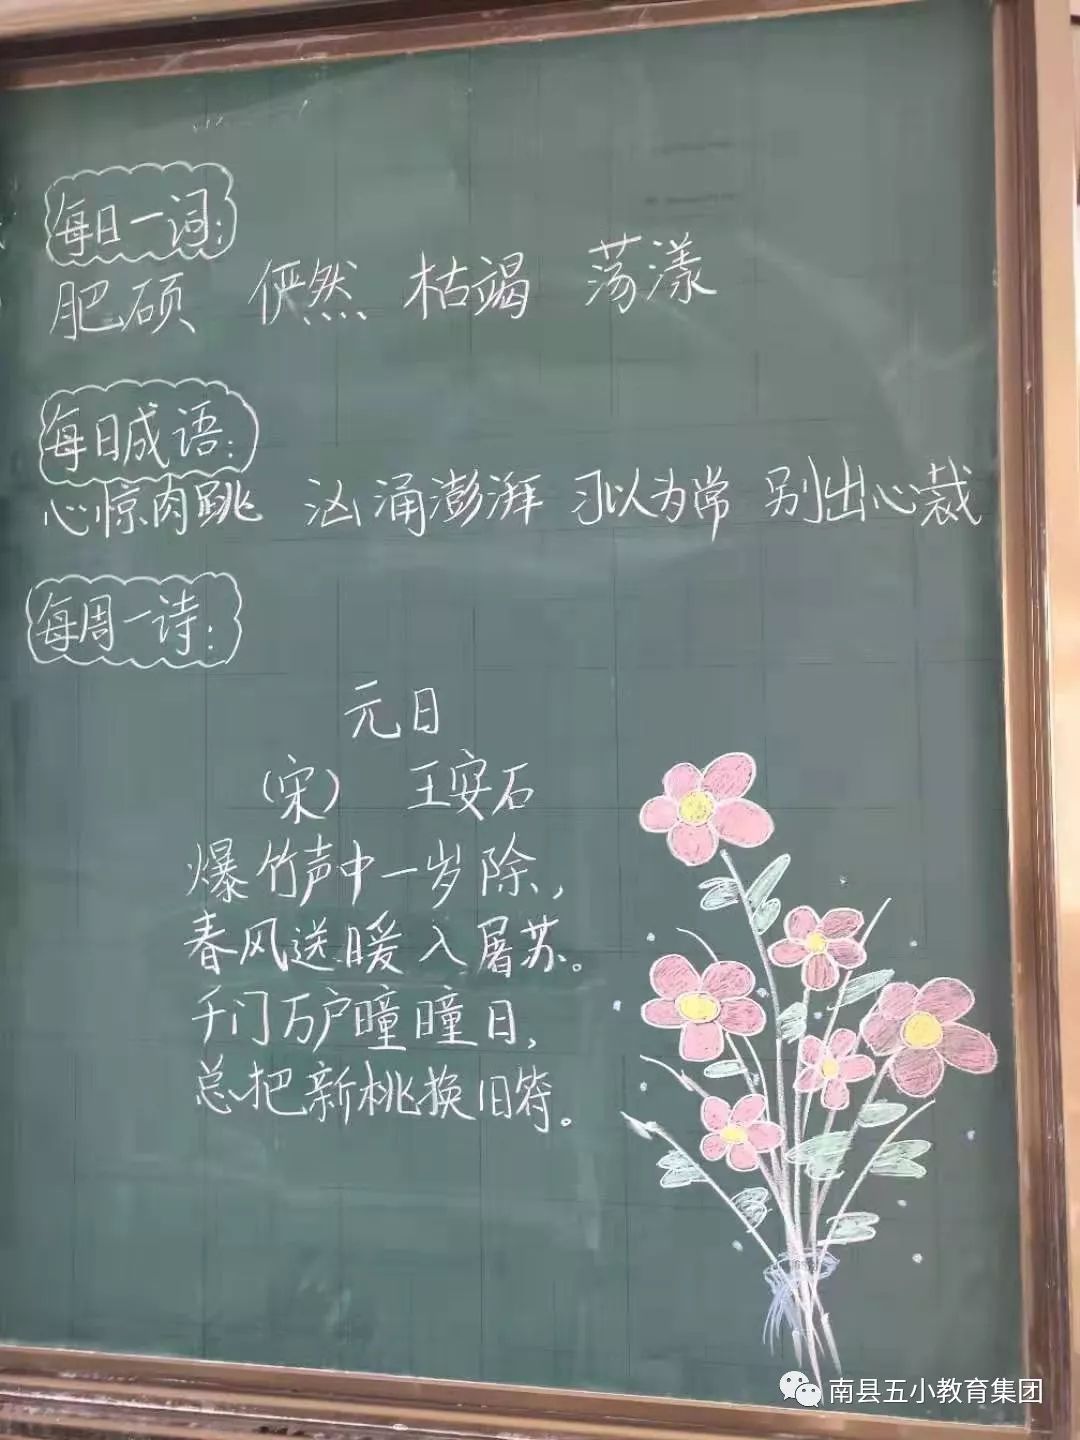 每日一词:
肥硕 俨然 枯竭 荡漾
每日成语:
心惊肉跳 汹涌澎湃 习以为常 别出心裁
每周一诗:
元日
(宋) 王安石
爆竹声中一岁除,
春风送暖入屠苏。
千门万户曈曈日,
总把新桃换旧符。
南县五小教育集团